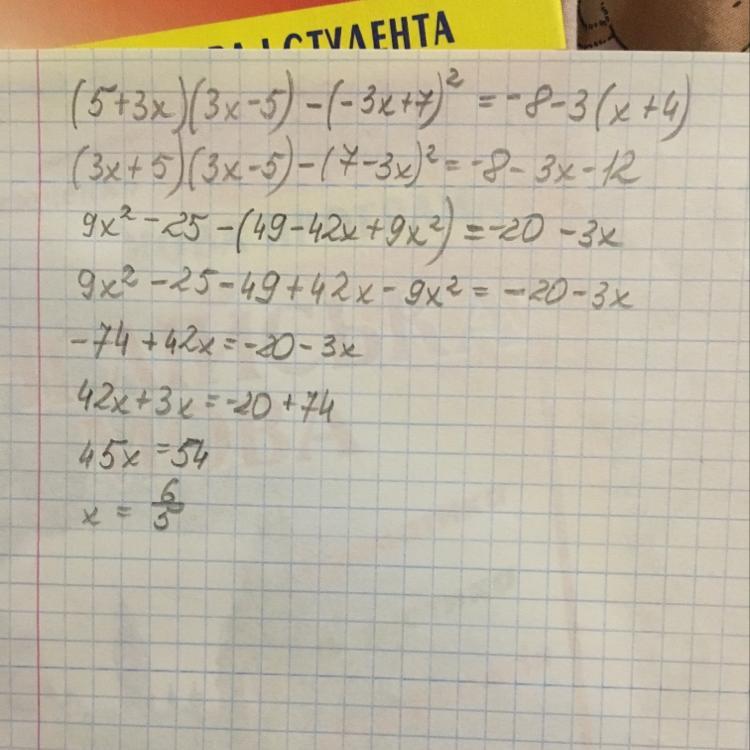 І СТУДЕНТА
(5+3x)(3x-5)-(-3x+7)²=-8-3(x+4)
(3x+5)(3x-5)-(7-3x)²=-8-3x-12
9x²-25-(49-42x+9x²)=-20-3x
9x²-25-49+42x-9x²=-20-3x
-74+42x=-20-3x
42x+3x=-20+74
45x=54
x=6/5